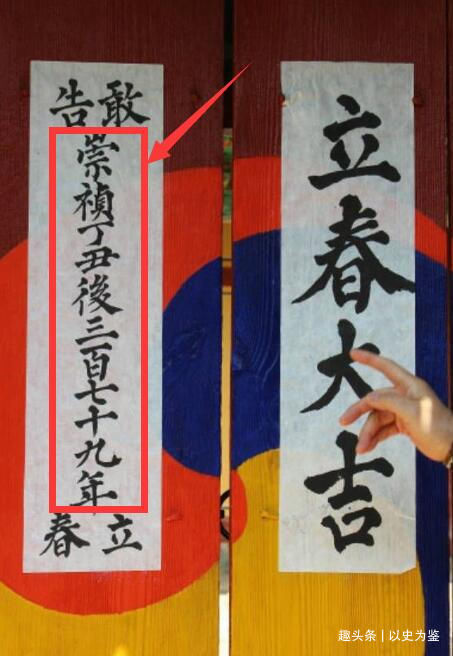 敢告
崇禎丁丑後三百七十九年
立春
立春大吉
趣头条 | 以史为鉴